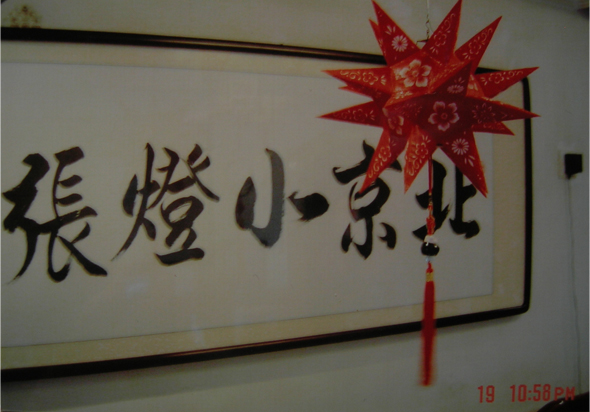 北京小燈張
19 10:58PM